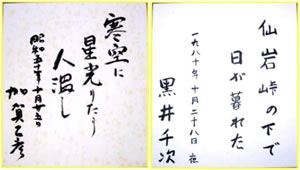 寒空に
星光りたり
人温し
昭和五十年十月廿五日
加賀乙彦
仙岩峠の下で
日が暮れた
一九八十年十月二十八日夜
黒井千次